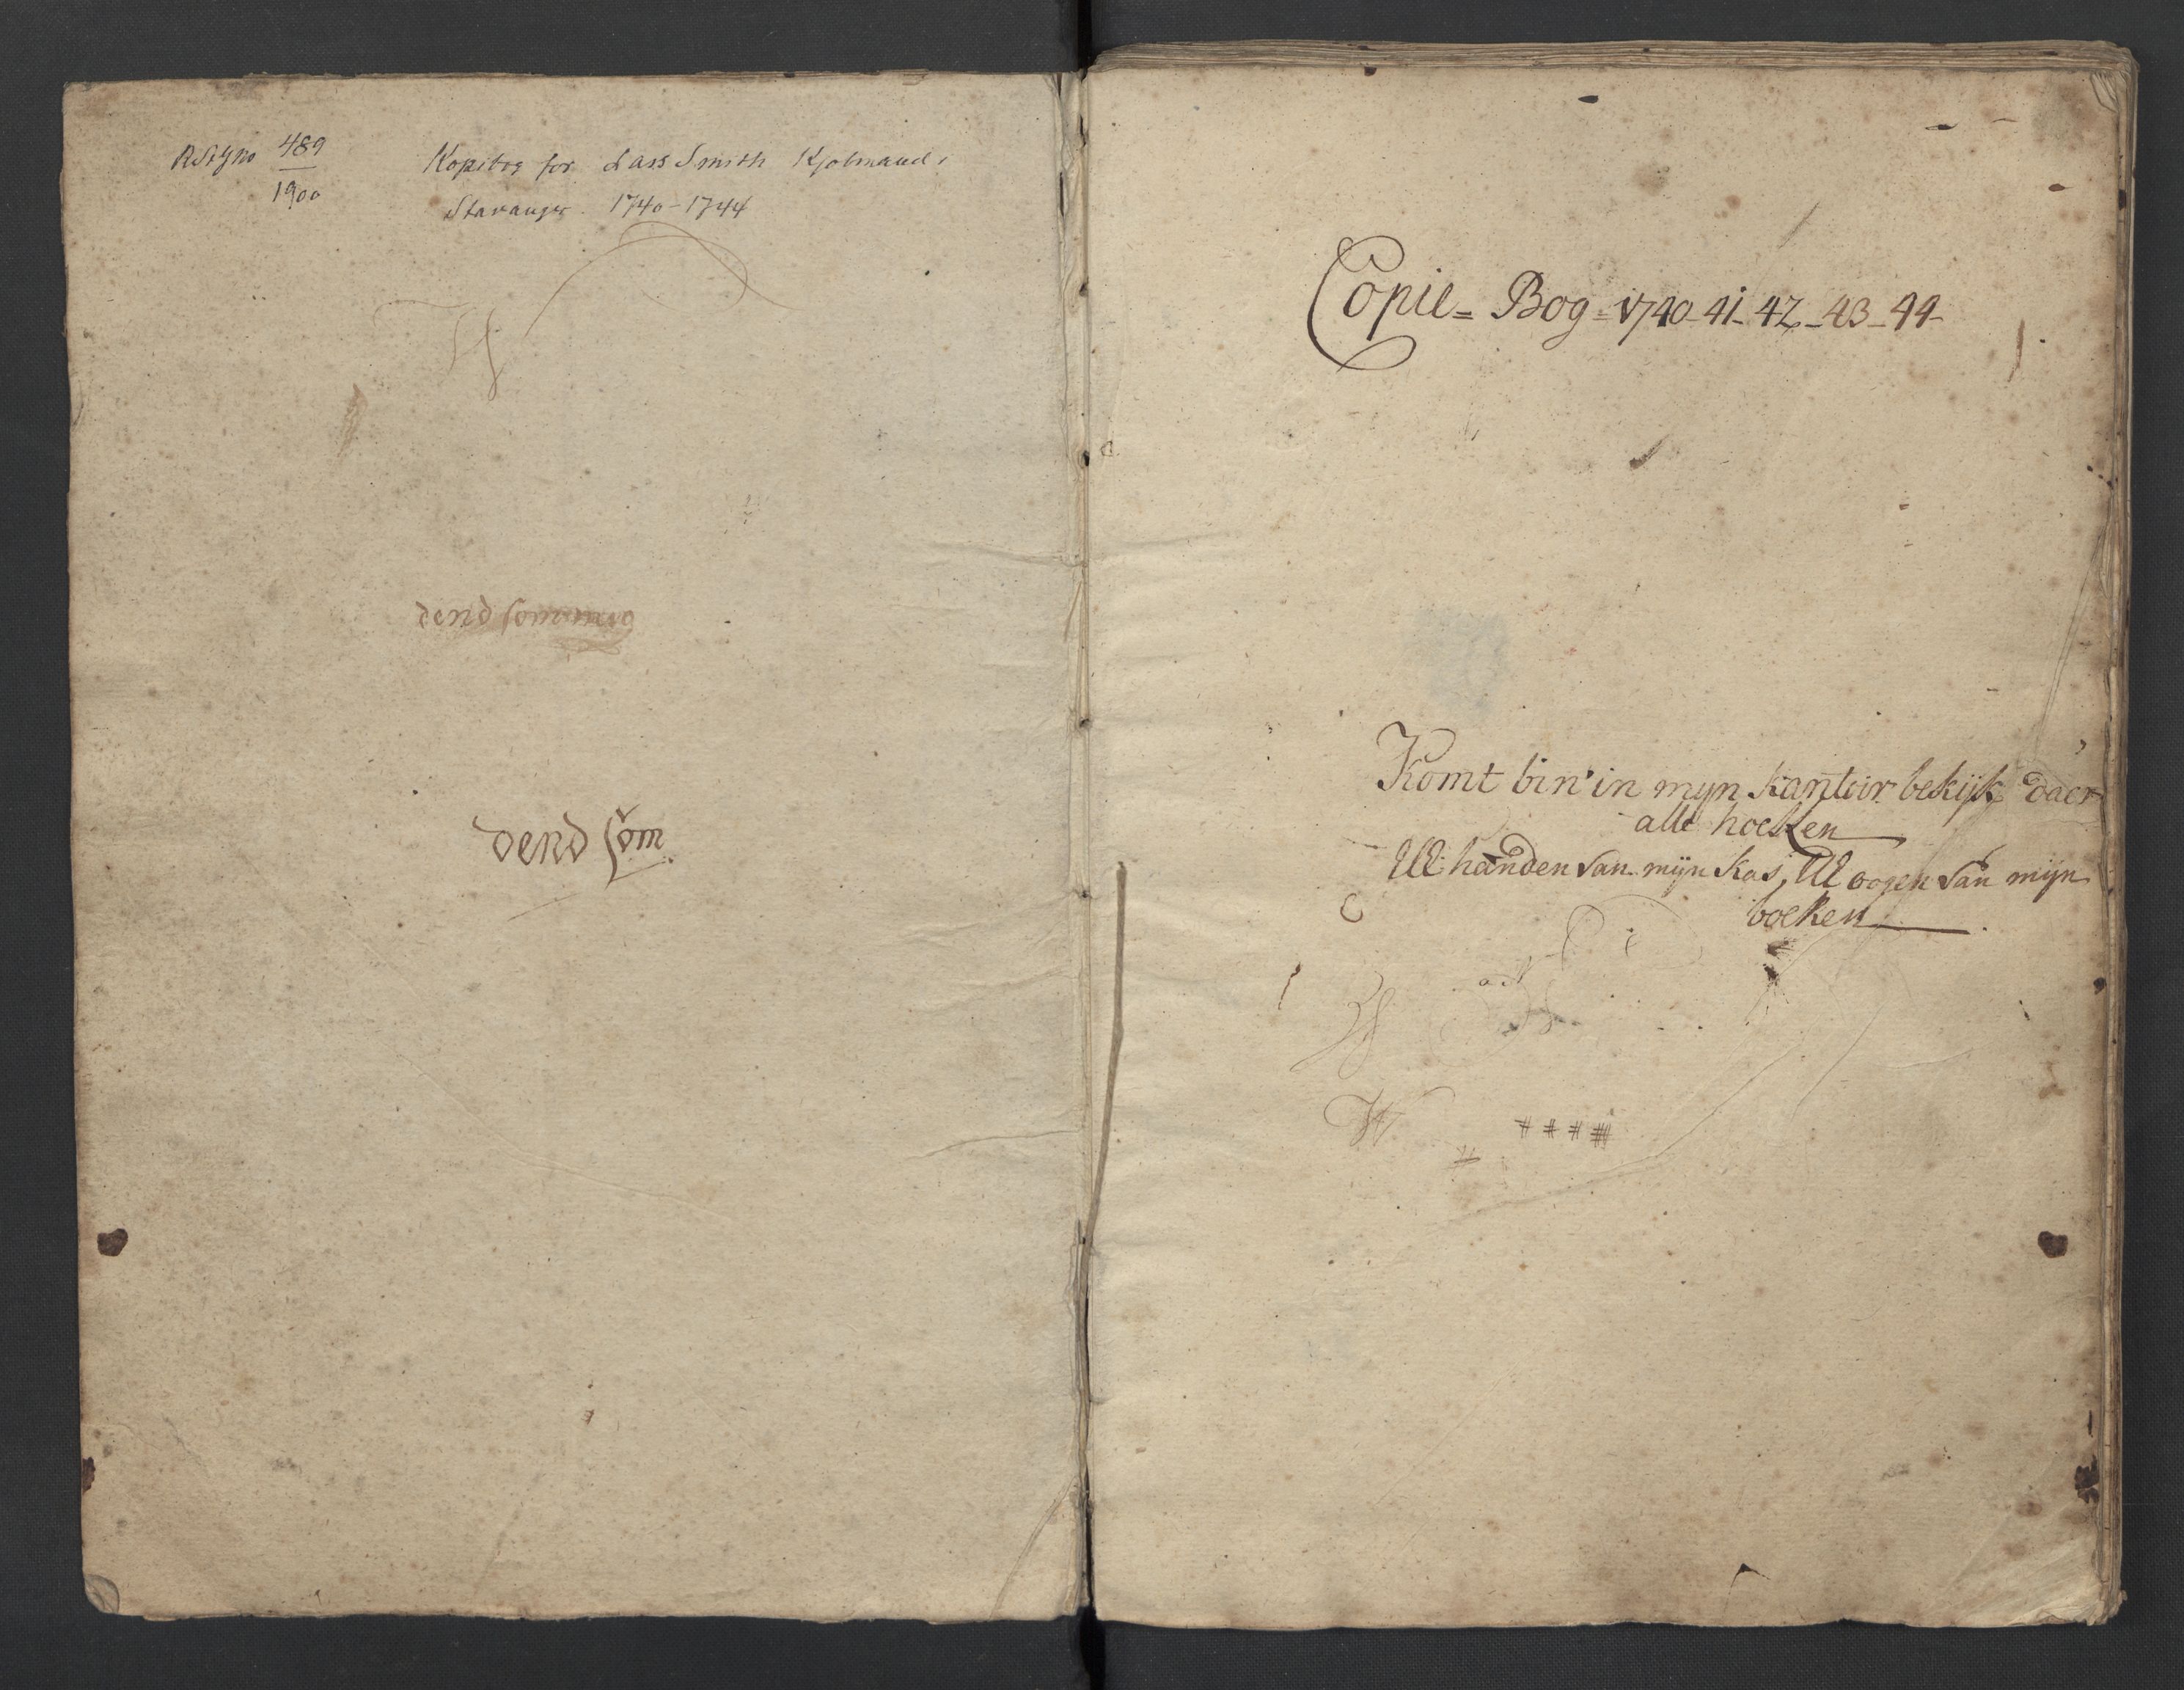 489
1900
Kopibog for Lars Smith Kjøbmand i
Stavanger. 1740-1744
dend som mig
dend som
Copie= Bog= 1740-41-42-43-44-
Komt bin in myn kantoir bekijk daer
alle hoeken
Ul: handen van mijn kas, Ul oogen van mijn
boeken